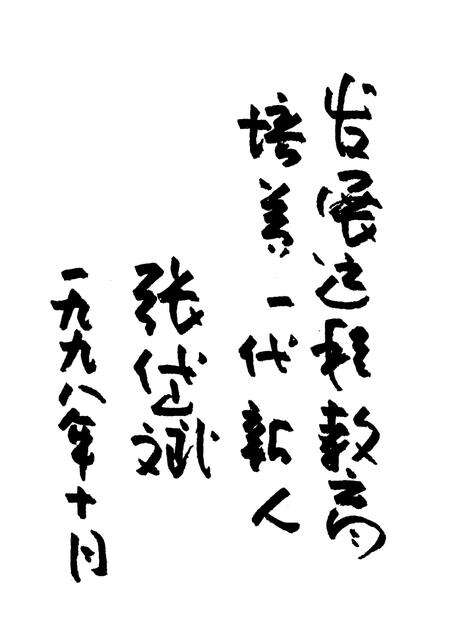 发展远程教育
培养一代新人
张岱斌
一九九八年十月